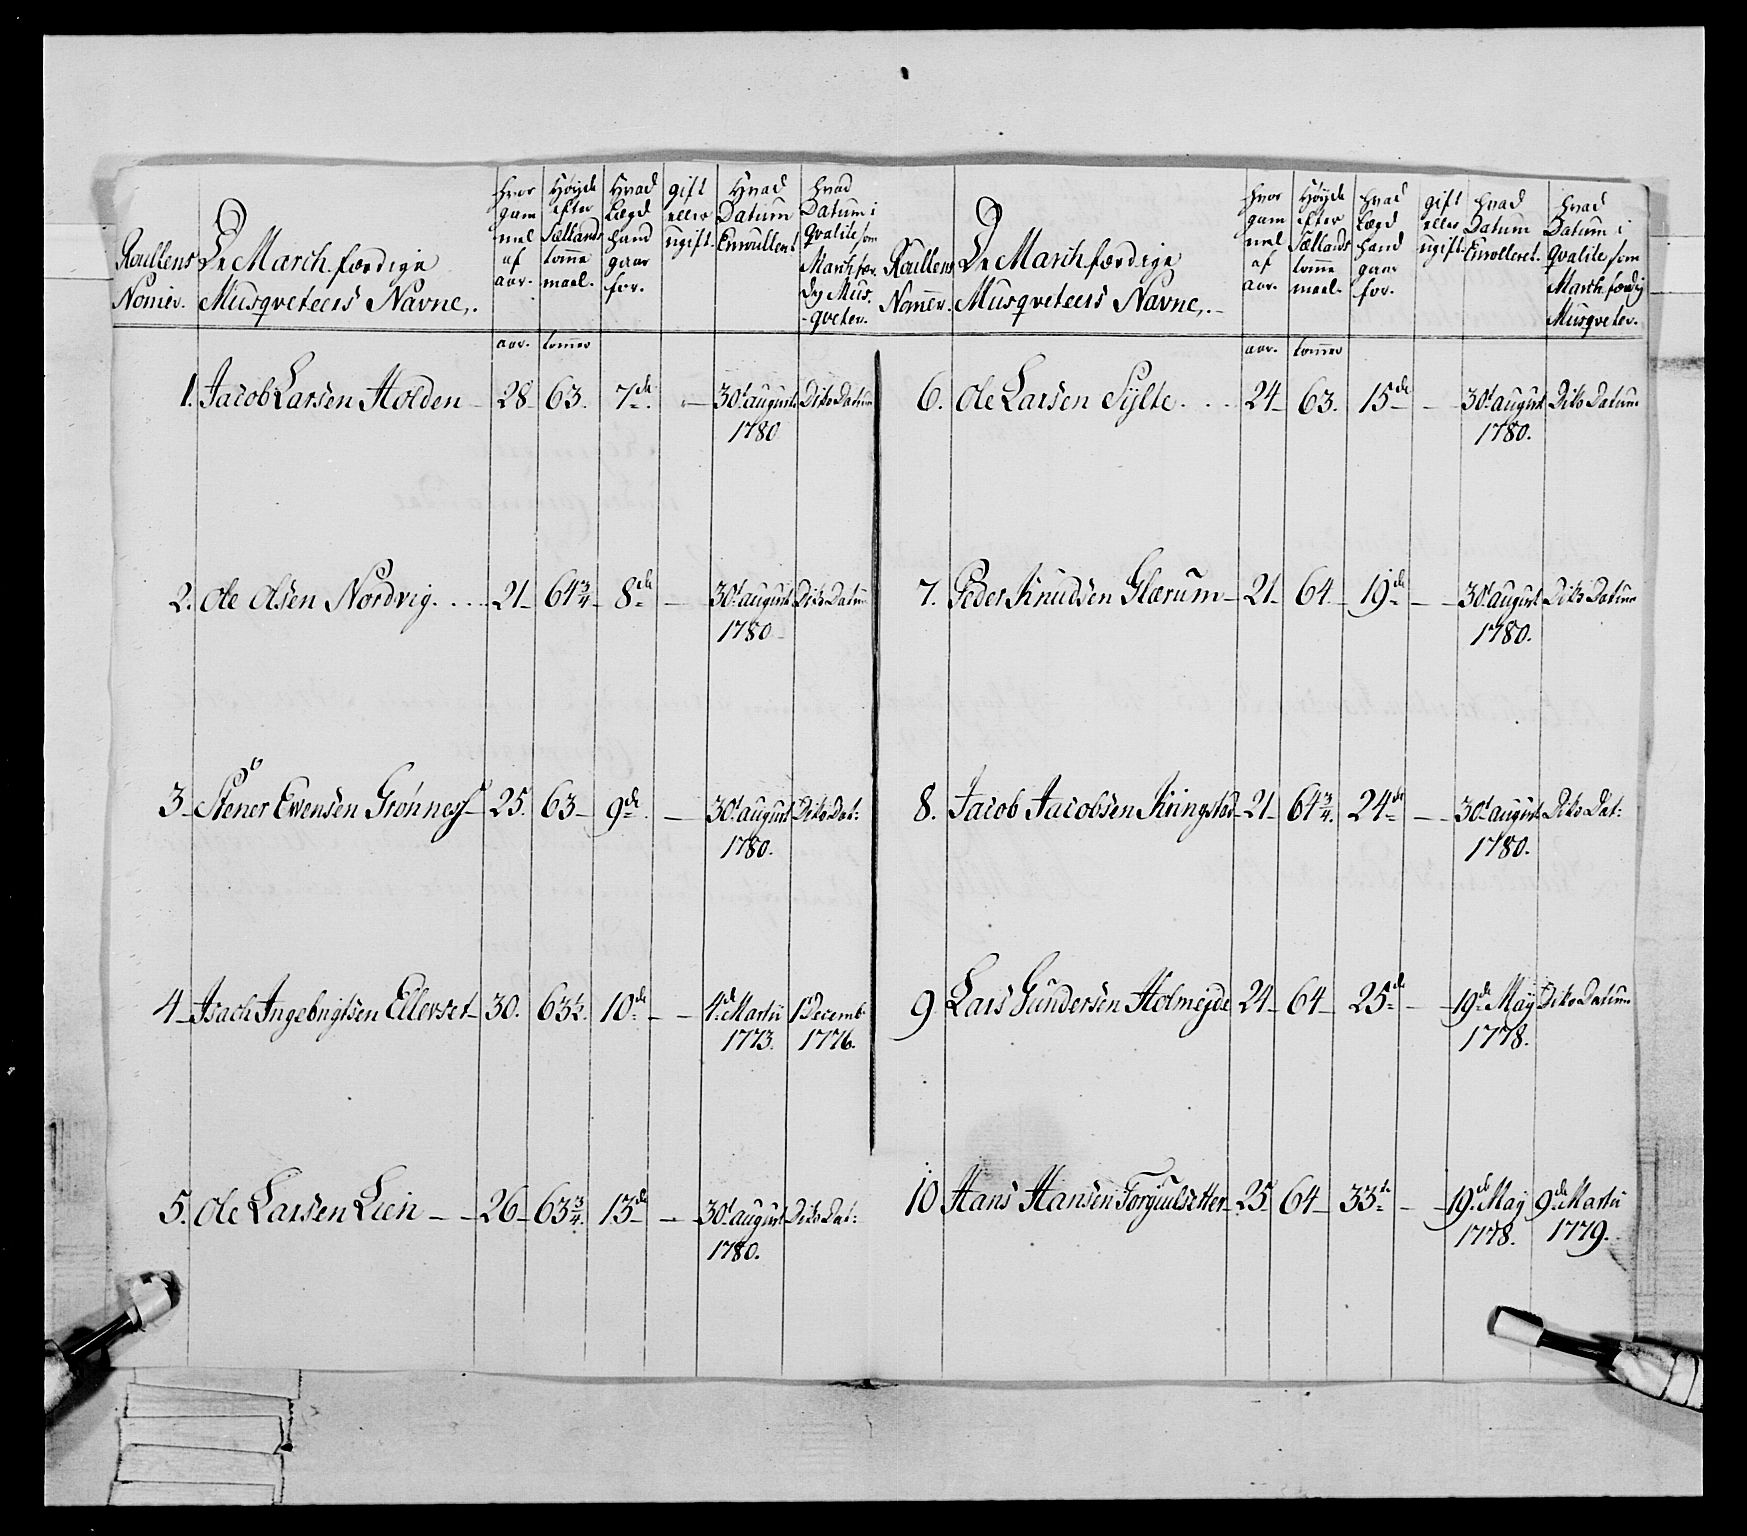 Roullens Nomer.
De March færdige Musqveteers Navne.
hvor gam mel af aar.
Høyde efter Sællands tomme maal.
Hvad Lægd hand gaar for.
gift eller ugift.
Hvad Datum Enroullert
hvad Datum i Qvalite som March fær. dig Mus. -qveter.
aar. tommer
1. Jacob Larsen Holden - 28 63. 7de. - 30t august 1780 Dito Datum
2. Ole Olsen Nordvig. . . . 21 - 64 3/4 - 8de - 30t august 1780 - Dito Datum
3 - Stener Evensen Grønness - 25. 63 - 9de. - 30t august 1780. Dito Dat:
4 - Isach Ingebrigtsen Ellevset - 30. 63 1/2. 10de - - 4de Martii 1773. 1t Decemb. 1776.
5. Ole Larsen Lien - - 26 - 63 3/4. 13de - 30t august 1780. Dito Dat:
Roullens Nomer.
De March færdige Musqveteers Navne.
hvor gam mel af aar.
Høyde efter Sællands tomme maal.
hvad Lægd hand gaar for.
gift eller ugift
hvad Datum Enrollert.
hvad Datum i Qvalite som March færdig Musqveter.
aar. tommer
6. Ole Larsen Sylte. . . . 24 - 63. 15de - 30t august 1780. Dito Datum
7. Peder Knudsen Glærum - 21 - 64 - 19de - - 30t august 1780. Dito Datum
8. Jacob Jacobsen Kringstad - 21 - 64 3/4. 24de - - 30t august 1780. Dito Dat:
9 Lars Gundersen Holmejde 24 - 64 - 25de - - 19de May 1778. Dito Datum
10 Hans Hansen Torjulsetter - 25. 64 - 33te - - 19de May 1778. 9de Martii 1779.